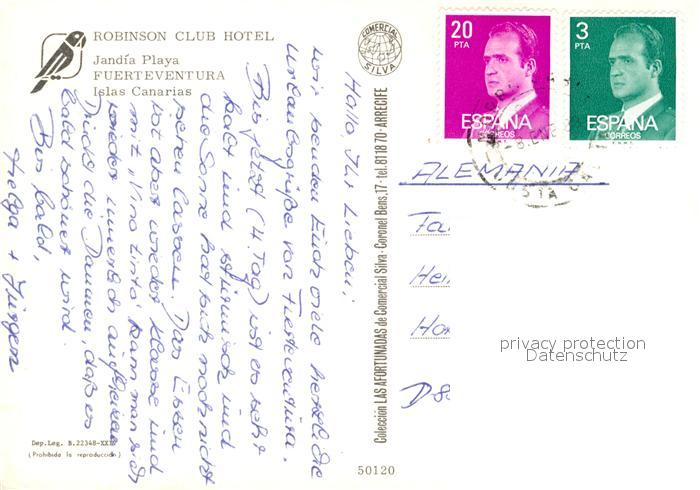 ROBINSON CLUB HOTEL
Jandía Playa
FUERTEVENTURA
Islas Canarias
COMERCIAL
SILVA
20
PTA
ESPAÑA
CORREOS
3
PTA
ESPAÑA
CORREOS
Hallo Ihr Lieben,
wir senden Euch viele herzliche
Urlaubsgrüße von Fuerteventura.
Bis jetzt (4. Tag) ist es sehr
kalt und stürmisch und
die Sonne hat sich noch nicht
sehen lassen. Das Essen
ist aber wieder klasse und
mit "Vino tinto" kann man sich
wieder innerlich aufheizen
Drückt die Daumen, daß es
bald schöner wird.
Bis bald,
Helga + Jürgen
Colección LAS AFORTUNADAS de Comercial Silva - Coronel Bens, 17 - tel. 81 18 70 - ARRECIFE
ALEMANIA
Fa
Hei
D8
privacy protection
Datenschutz
Dep. Leg. B. 22348-XX
(Prohibida la reproducción)
50120